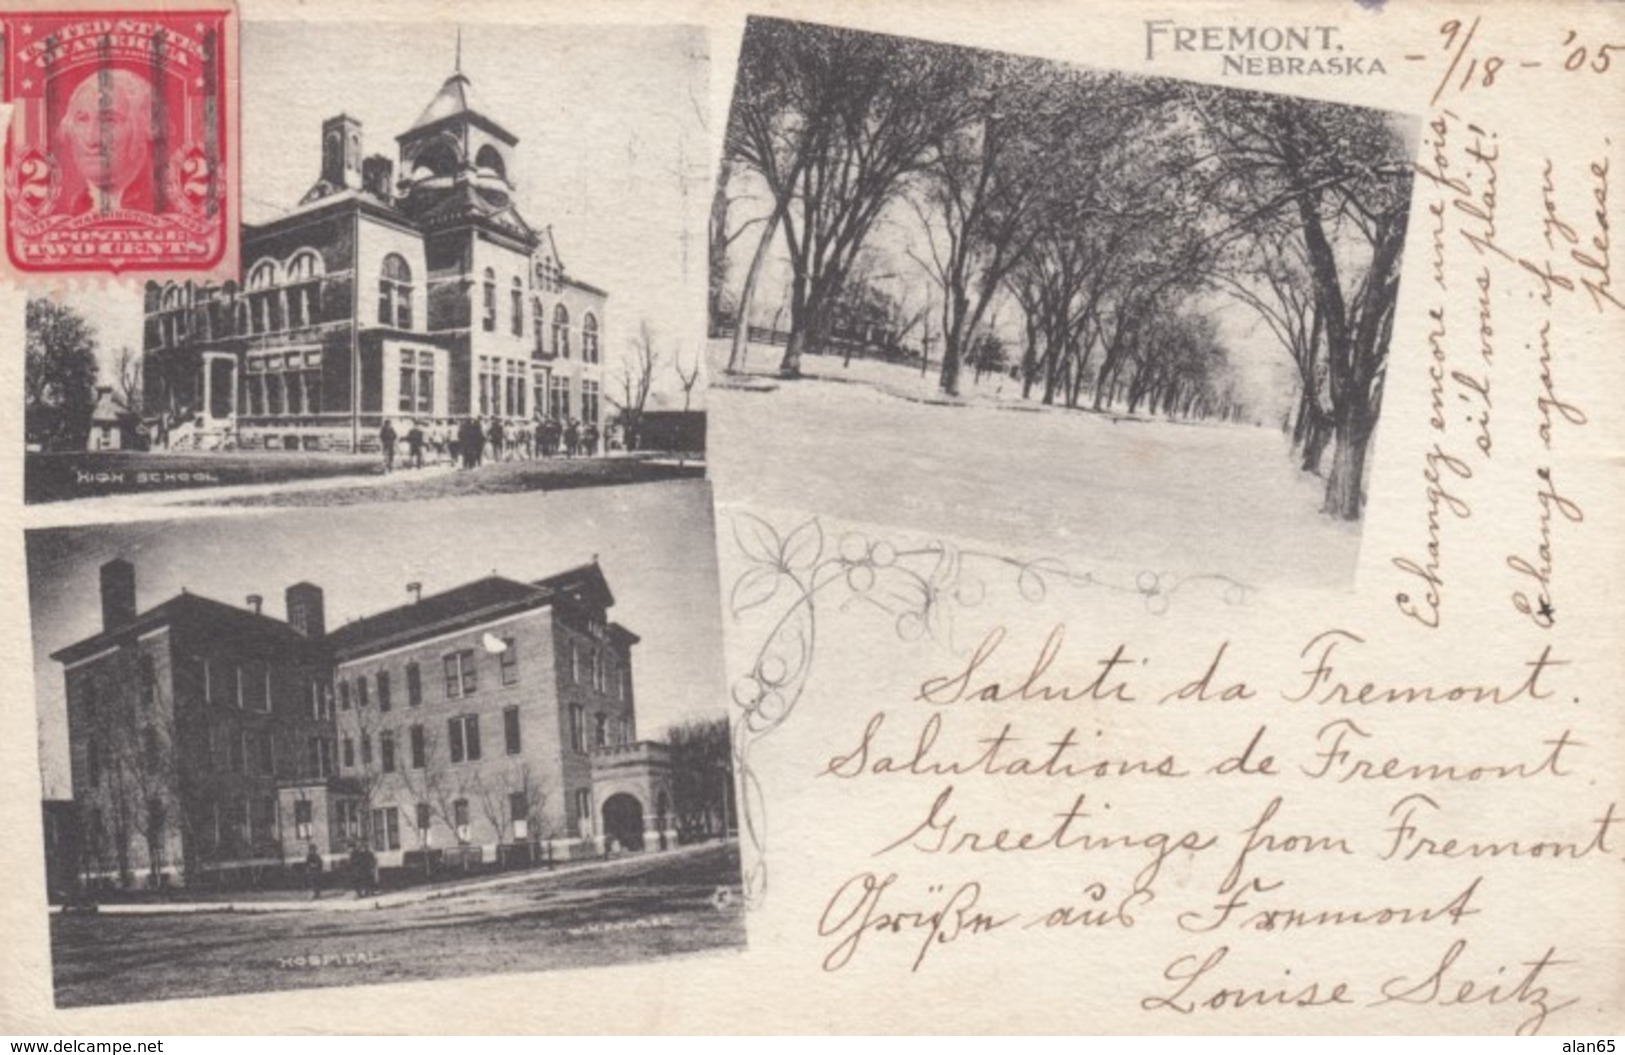 UNITED STATES
OF AMERICA
2 2
WASHINGTON
POSTAGE
TWO CENTS
FREMONT,
NEBRASKA
- 9/18 - '05
Echangez encore une fois,
s'il vous plait!
Exchange again if you
please.
HIGH SCHOOL
HOSPITAL
Saluti da Fremont.
Salutations de Fremont.
Greetings from Fremont.
Grüße aus Fremont
Louise Seitz
www.delcampe.net
alan65